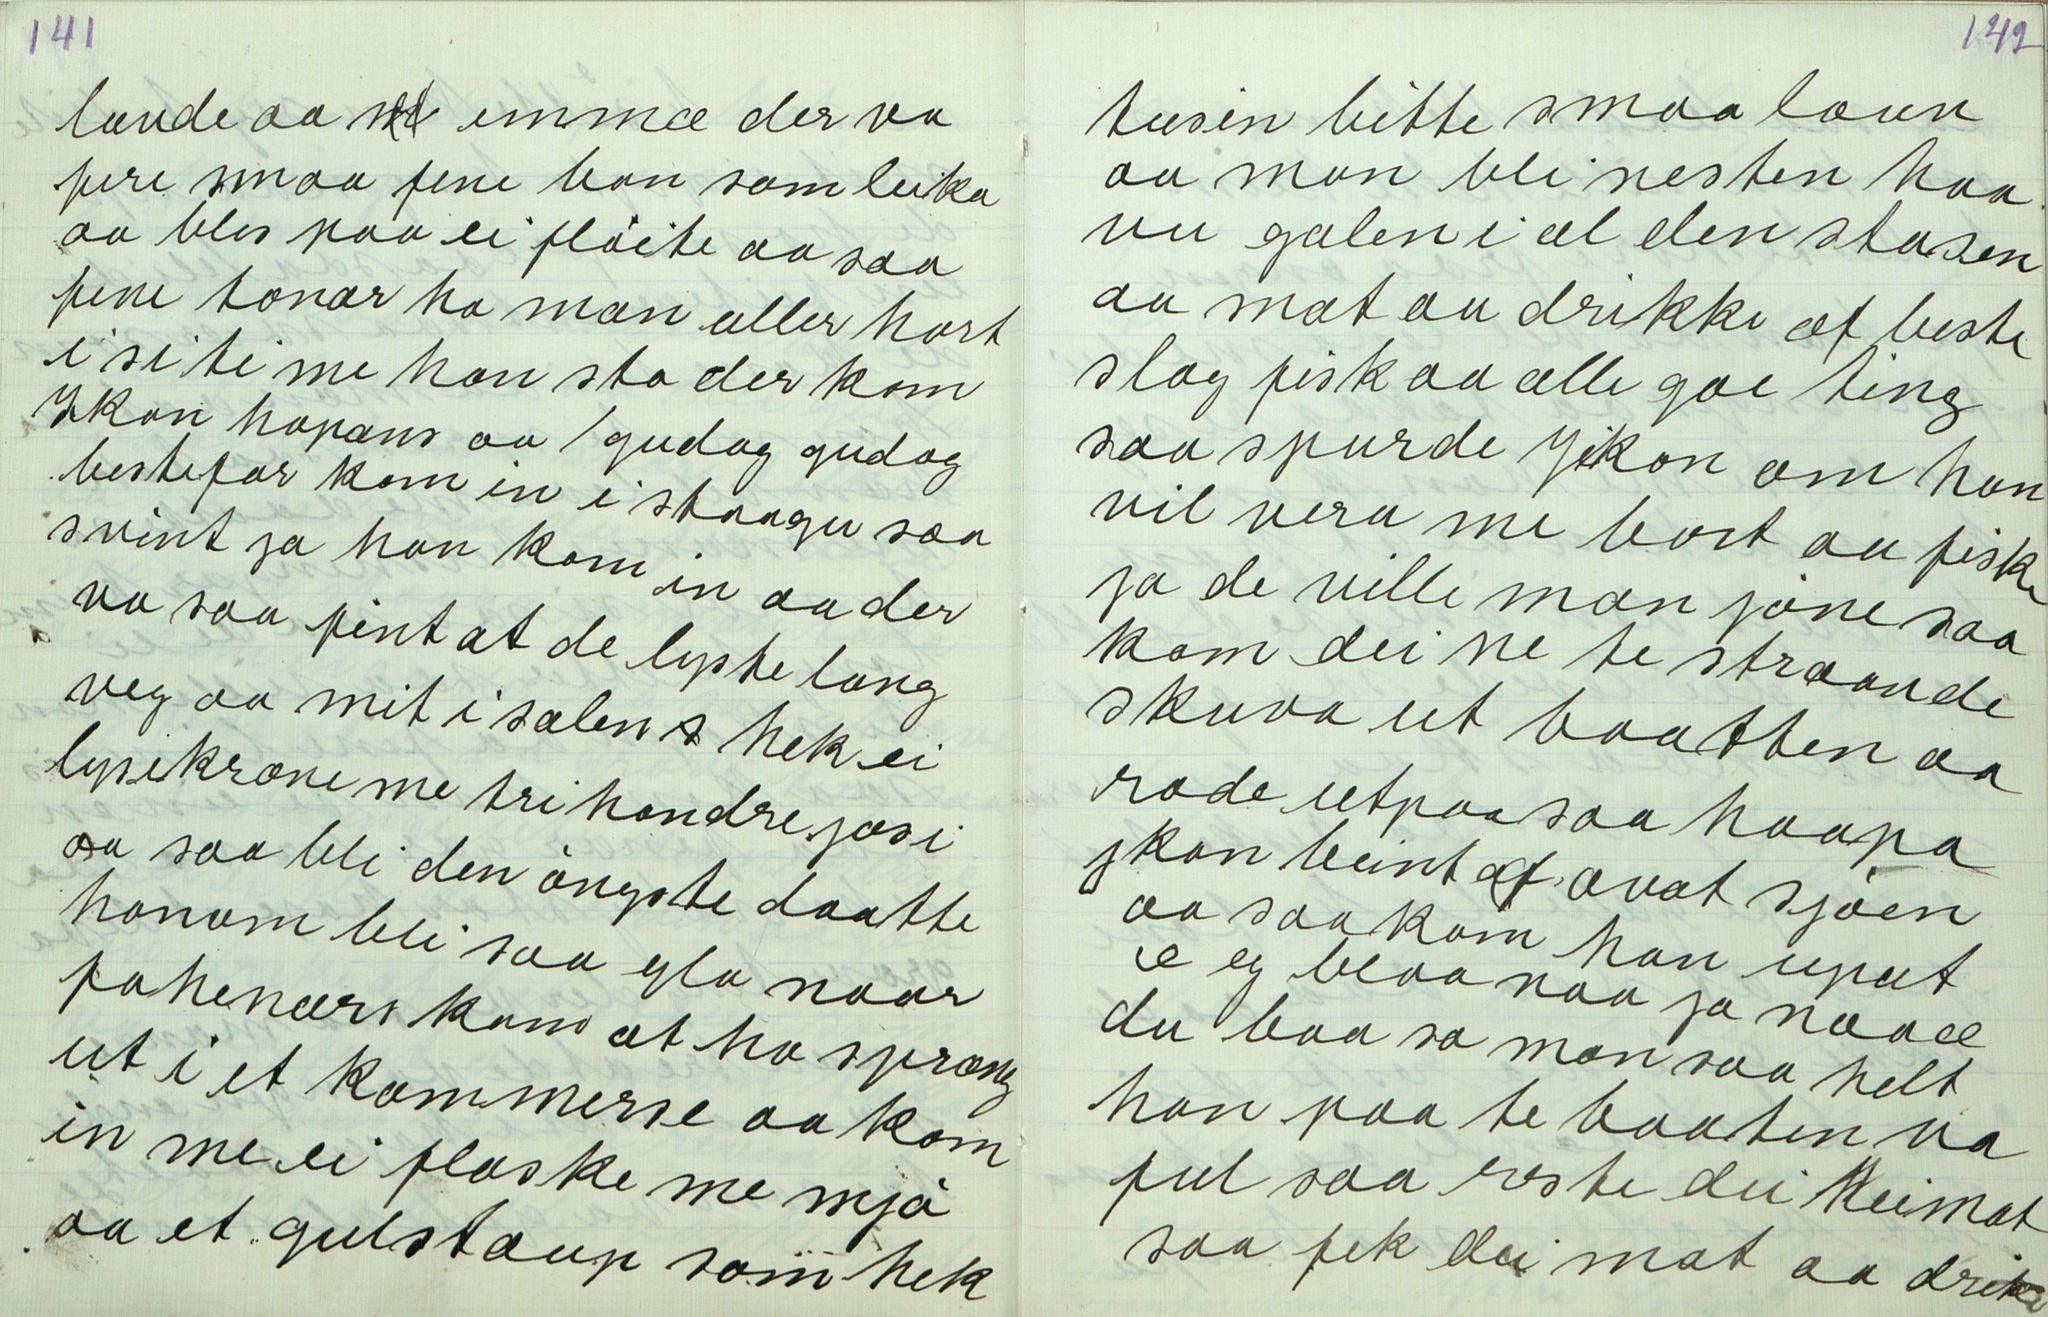 141
lænde aa emmæ der va
fire smaa fine bon som leika
aa bles paa ei flòite aa saa
fine tonar ha man aller hort
i si ti me han sto der kom
Ikon hopans aa / gudag gudag
bestefar kom in i staagu saa
svint ja han kom in aa der
va saa fint at de lyste lang
veg aa mit i salen hek ei
lysekrone me tri hondre jos i
aa saa bli den òngste daatte
honom bli saa gla naar
fahenærs kom at ha sprang
ut i et kammerse aa kom
in me ei flaske me mjò
aa et gulstaup som hek
142
tusin bitte smaa laun
aa man bli nesten haa
vu galen i al den stasen
aa mat aa drikke af beste
slag fisk aa alle goe ting
saa spurde Ikon om han
vil vera me bort aa fiske
ja de ville man jòne saa
kom dei ne te straande
skuva ut baatten aa
rode utpaa saa haapa
jkon beint af ovat sjòen
aa saa kom han uput
æ eg blaa naa ja naa æ
du blaa sa man saa helt
han paa te baaten va
ful saa reste dei heimat
saa fek dei mat aa drikke